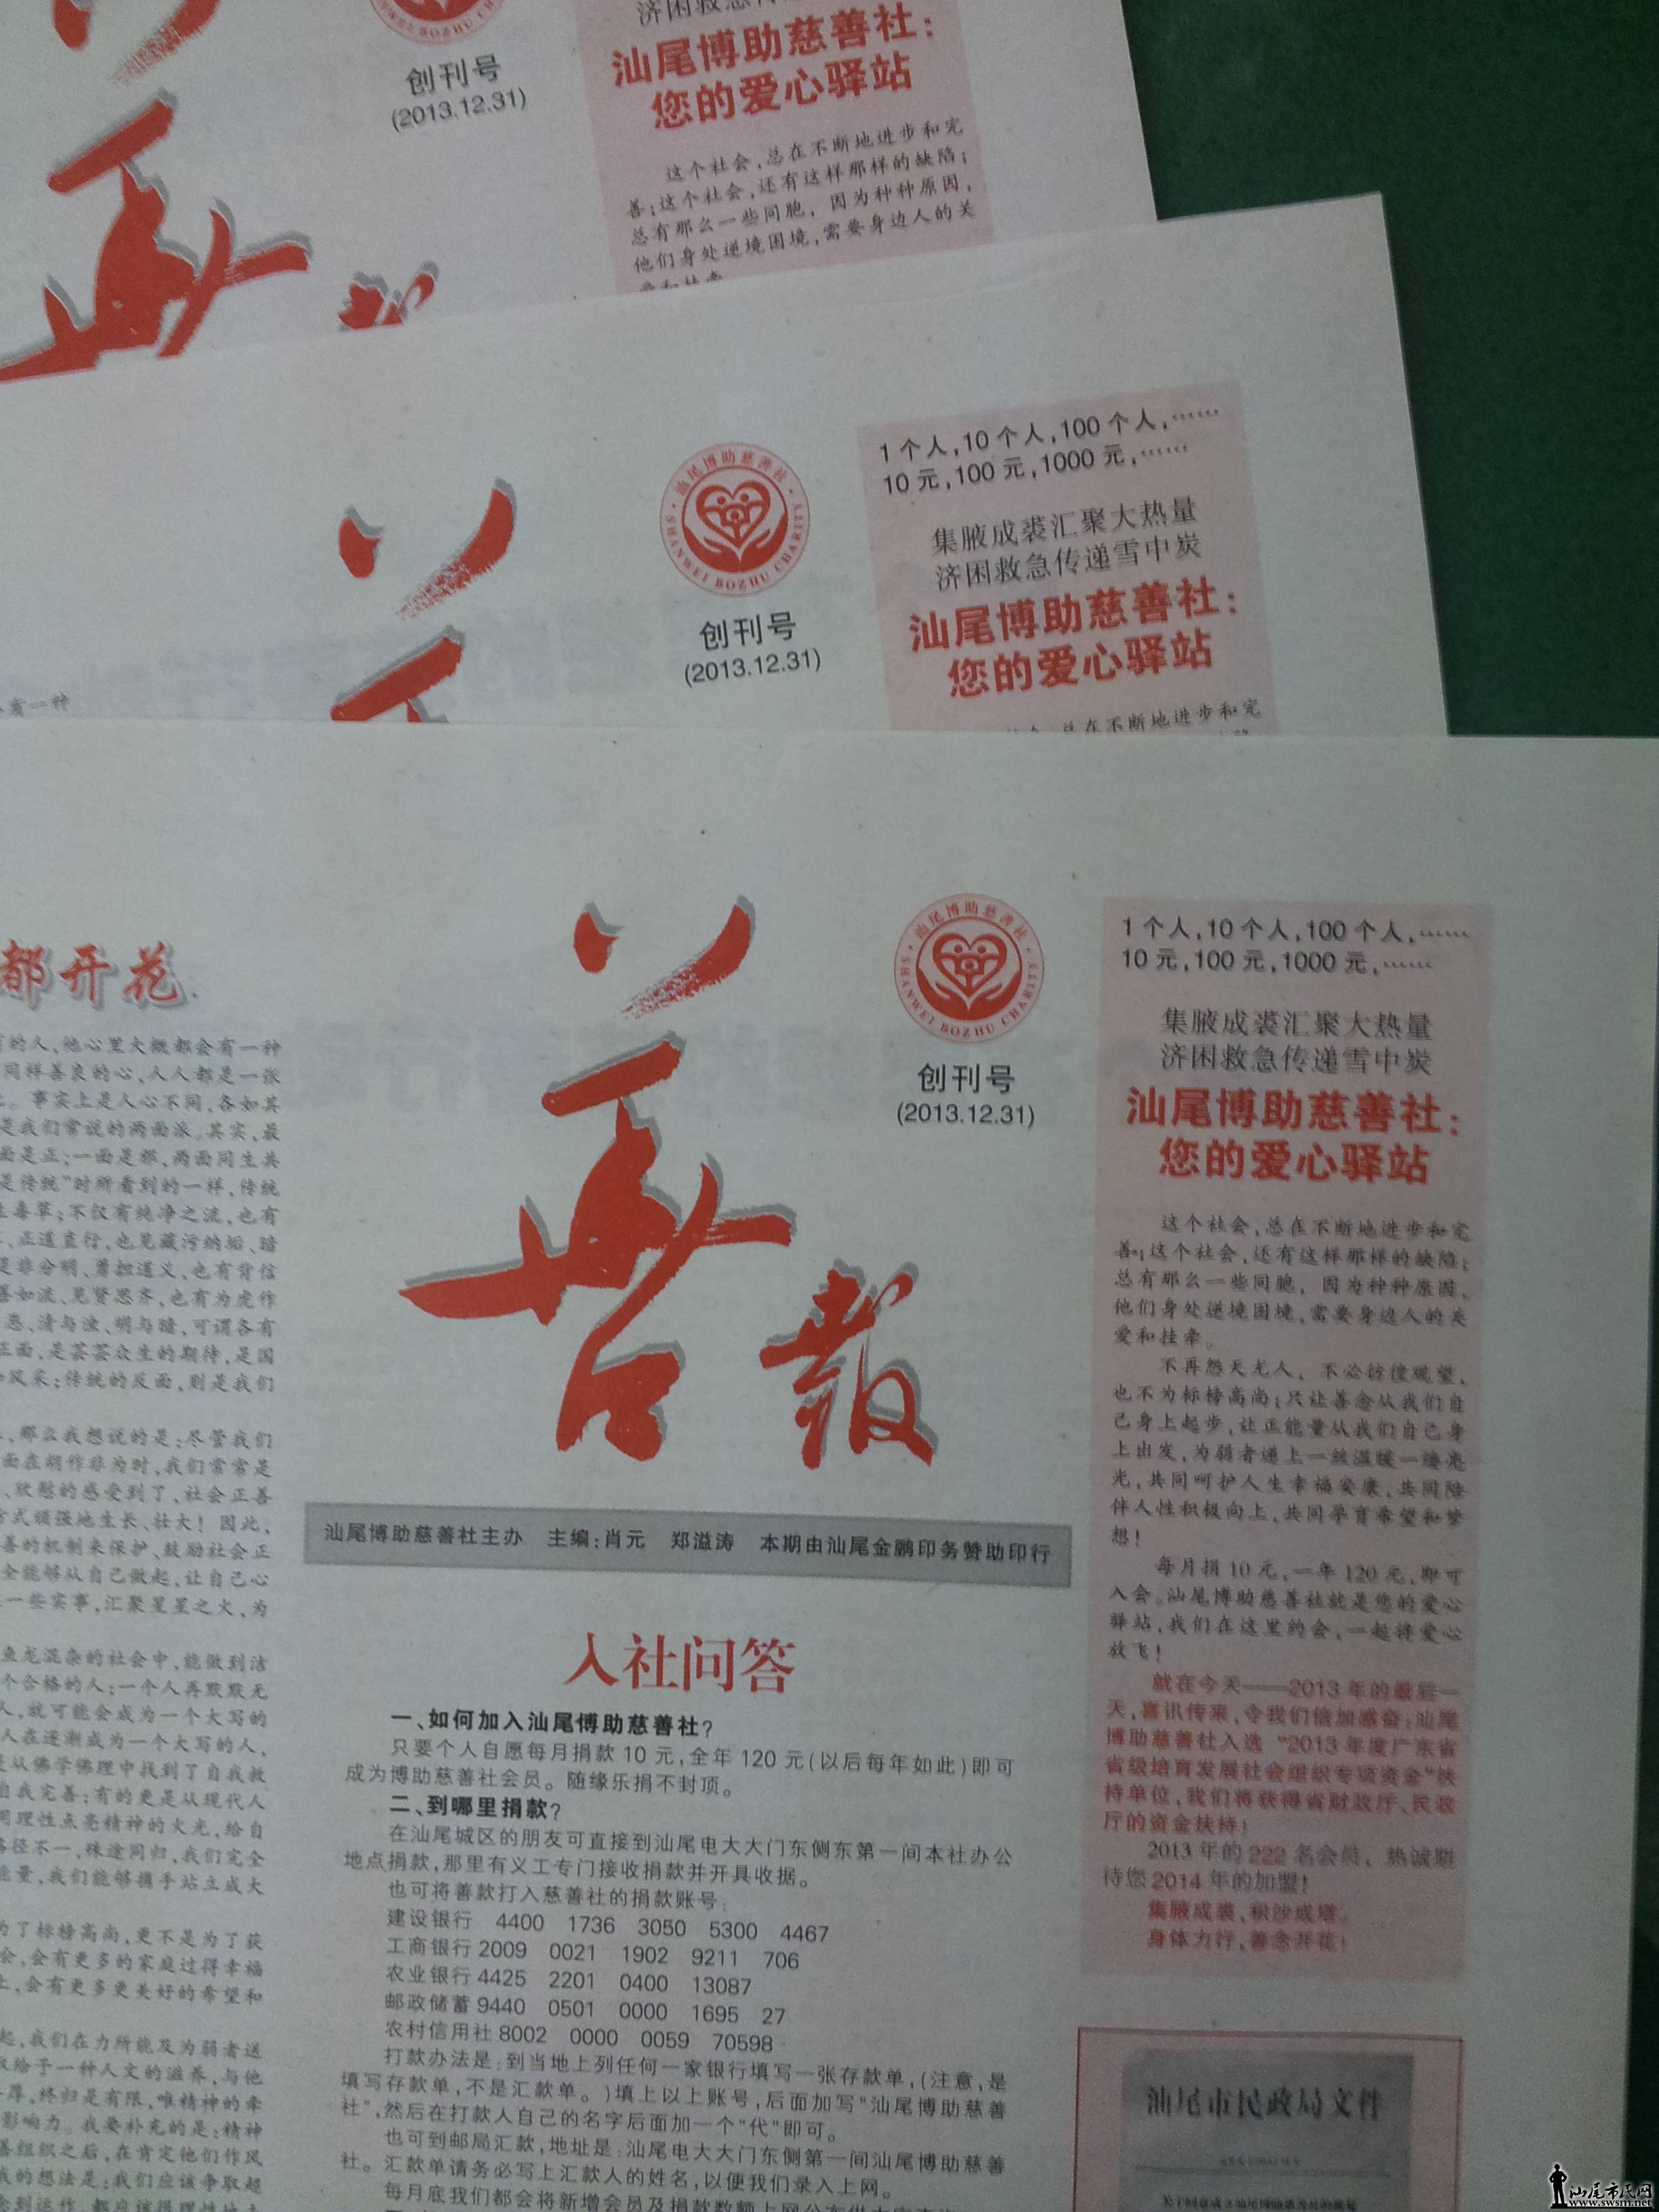 济困救急传递
汕尾博助慈善社:
您的爱心驿站
创刊号
(2013.12.31)
这个社会,总在不断地进步和完
善;这个社会,还有这样那样的缺陷;
总有那么一些同胞,因为种种原因,
他们身处逆境困境,需要身边人的关
爱和挂牵
1个人,10个人,100个人,……
10元,100元,1000元,……
集腋成裘汇聚大热量
济困救急传递雪中炭
汕尾博助慈善社:
您的爱心驿站
总在不断地进步和完
汕尾博助慈善社
SHANWEI BOZHU CHARITY
创刊号
(2013.12.31)
有一种
都开花
的人,他心里大概都会有一种
同样善良的心,人人都是一张
。事实上是人心不同,各如其
是我们常说的两面派。其实,最
面是正;一面是邪,两面同生共
是传统”时所看到的一样,传统
毒草;不仅有纯净之流,也有
、正道直行,也见藏污纳垢、暗
是非分明、勇担道义,也有背信
善如流、见贤思齐,也有为虎作
恶、清与浊、明与暗,可谓各有
正面,是芸芸众生的期待,是国
风采;传统的反面,则是我们
,那么我想说的是:尽管我们
面在胡作非为时,我们常常是
、欣慰的感受到了,社会正善
方式顽强地生长、壮大!因此,
善的机制来保护、鼓励社会正
全能够从自己做起,让自己心
一些实事,汇聚星星之火,为
鱼龙混杂的社会中,能做到洁
个合格的人;一个人再默默无
人,就可能会成为一个大写的
人在逐渐成为一个大写的人,
从佛学佛理中找到了自我救
自我完善;有的更是从现代人
用理性点亮精神的火光,给自
路径不一,殊途同归,我们完全
能量,我们能够携手站立成大
为了标榜高尚,更不是为了获
会,会有更多的家庭过得幸福
上,会有更多更美好的希望和
起,我们在力所能及为弱者送
给于一种人文的滋养,与他
薄,终归是有限,唯精神的牵
影响力。我要补充的是:精神
善组织之后,在肯定他们作风
我的想法是:我们应该争取超
善报
汕尾博助慈善社
SHANWEI BOZHU CHARITY
创刊号
(2013.12.31)
汕尾博助慈善社主办 主编:肖元 郑溢涛 本期由汕尾金鹏印务赞助印行
入社问答
一、如何加入汕尾博助慈善社?
只要个人自愿每月捐款10元,全年120元(以后每年如此)即可
成为博助慈善社会员。随缘乐捐不封顶。
二、到哪里捐款?
在汕尾城区的朋友可直接到汕尾电大大门东侧东第一间本社办公
地点捐款,那里有义工专门接收捐款并开具收据。
也可将善款打入慈善社的捐款账号:
建设银行 4400 1736 3050 5300 4467
工商银行 2009 0021 1902 9211 706
农业银行 4425 2201 0400 13087
邮政储蓄 9440 0501 0000 1695 27
农村信用社 8002 0000 0059 70598
打款办法是:到当地上列任何一家银行填写一张存款单,(注意,是
填写存款单,不是汇款单。)填上以上账号,后面加写“汕尾博助慈善
社”,然后在打款人自己的名字后面加一个“代”即可。
也可到邮局汇款,地址是:汕尾电大大门东侧第一间汕尾博助慈善
社。汇款单请务必写上汇款人的姓名,以便我们录入上网。
每月底我们都会将新增会员及捐款数额上网公布
1个人,10个人,100个人,……
10元,100元,1000元,……
集腋成裘汇聚大热量
济困救急传递雪中炭
汕尾博助慈善社:
您的爱心驿站
这个社会,总在不断地进步和完
善;这个社会,还有这样那样的缺陷;
总有那么一些同胞,因为种种原因,
他们身处逆境困境,需要身边人的关
爱和挂牵。
不再怨天尤人,不必彷徨观望,
也不为标榜高尚;只让善念从我们自
己身上起步,让正能量从我们自己身
上出发,为弱者递上一丝温暖一缕亮
光,共同呵护人生幸福安康,共同陪
伴人性积极向上,共同孕育希望和梦
想!
每月捐10元,一年120元,即可
入会。汕尾博助慈善社就是您的爱心
驿站,我们在这里约会,一起将爱心
放飞!
就在今天——2013年的最后一
天,喜讯传来,令我们倍加感奋:汕尾
博助慈善社入选“2013年度广东省
省级培育发展社会组织专项资金”扶
持单位,我们将获得省财政厅、民政
厅的资金扶持!
2013年的222名会员,热诚期
待您2014年的加盟!
集腋成裘,积沙成塔。
身体力行,善念开花!
汕尾市民政局文件
关于同意成立汕尾博助慈善社的批复
汕尾市民网
www.swsm.net